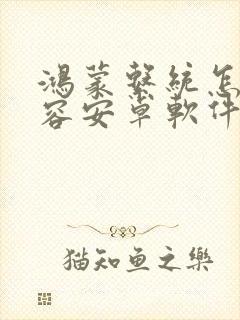 鴻蒙繫統怎
容安卓軟件
猫知鱼之樂